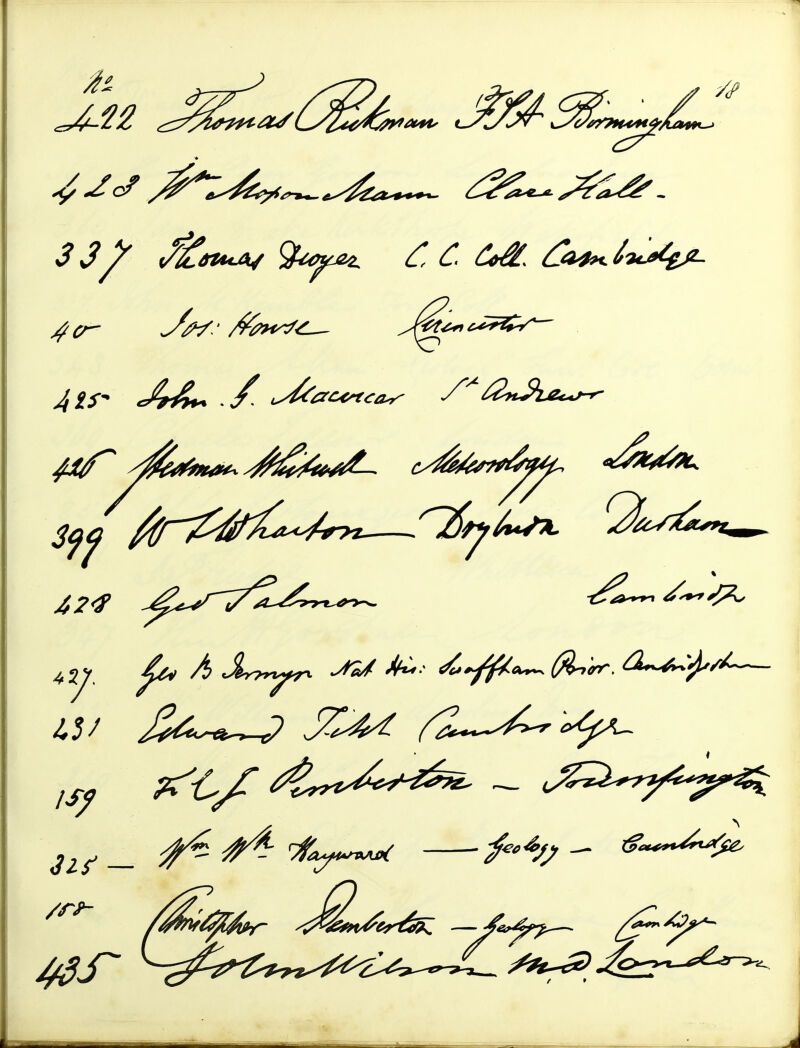 No 18
422 Thomas Rickman FSA Birmingham
423 Wm Moxon Mann Clare Hall -
337 Thomas Dwyer C. C. Coll. Cambridge
40 Jos: Howse Cirencester
425 John. G. Macvicar St Andrews
426 Stedman Whitwell Meteorology London
399 W L Wharton Dryburn Durham
428 Geo Salmon Cambridge
427. Geo B Jermyn Nat His: Swaffham Prior. Cambridgeshire
431 Edward Cambridge
159 Pemberton - Trumpington
325 - Wm Wk Hayward - Geology - Cambridge
158 Christopher Pemberton - Geology Cambridge
435 John Wilson M.D. London